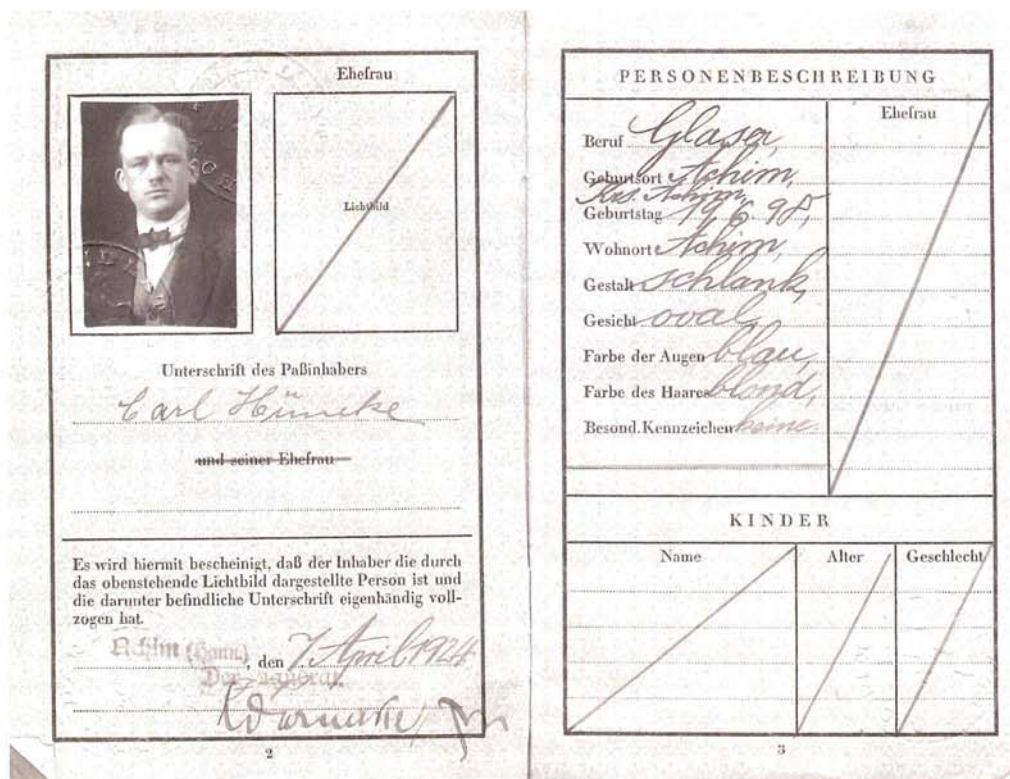 Ehefrau
Lichtbild
Unterschrift des Paßinhabers
Carl Hüneke
und seiner Ehefrau
Es wird hiermit bescheinigt, daß der Inhaber die durch
das obenstehende Lichtbild dargestellte Person ist und
die darunter befindliche Unterschrift eigenhändig voll-
zogen hat.
Achim (Hann.), den 7. April 1924
Der Landrat
2
PERSONENBESCHREIBUNG
Ehefrau
Beruf Glaser,
Geburtsort Achim,
Krs. Achim,
Geburtstag 19.6.98,
Wohnort Achim,
Gestalt schlank,
Gesicht oval,
Farbe der Augen blau,
Farbe des Haares blond,
Besond. Kennzeichen keine.
KINDER
Name Alter Geschlecht
3